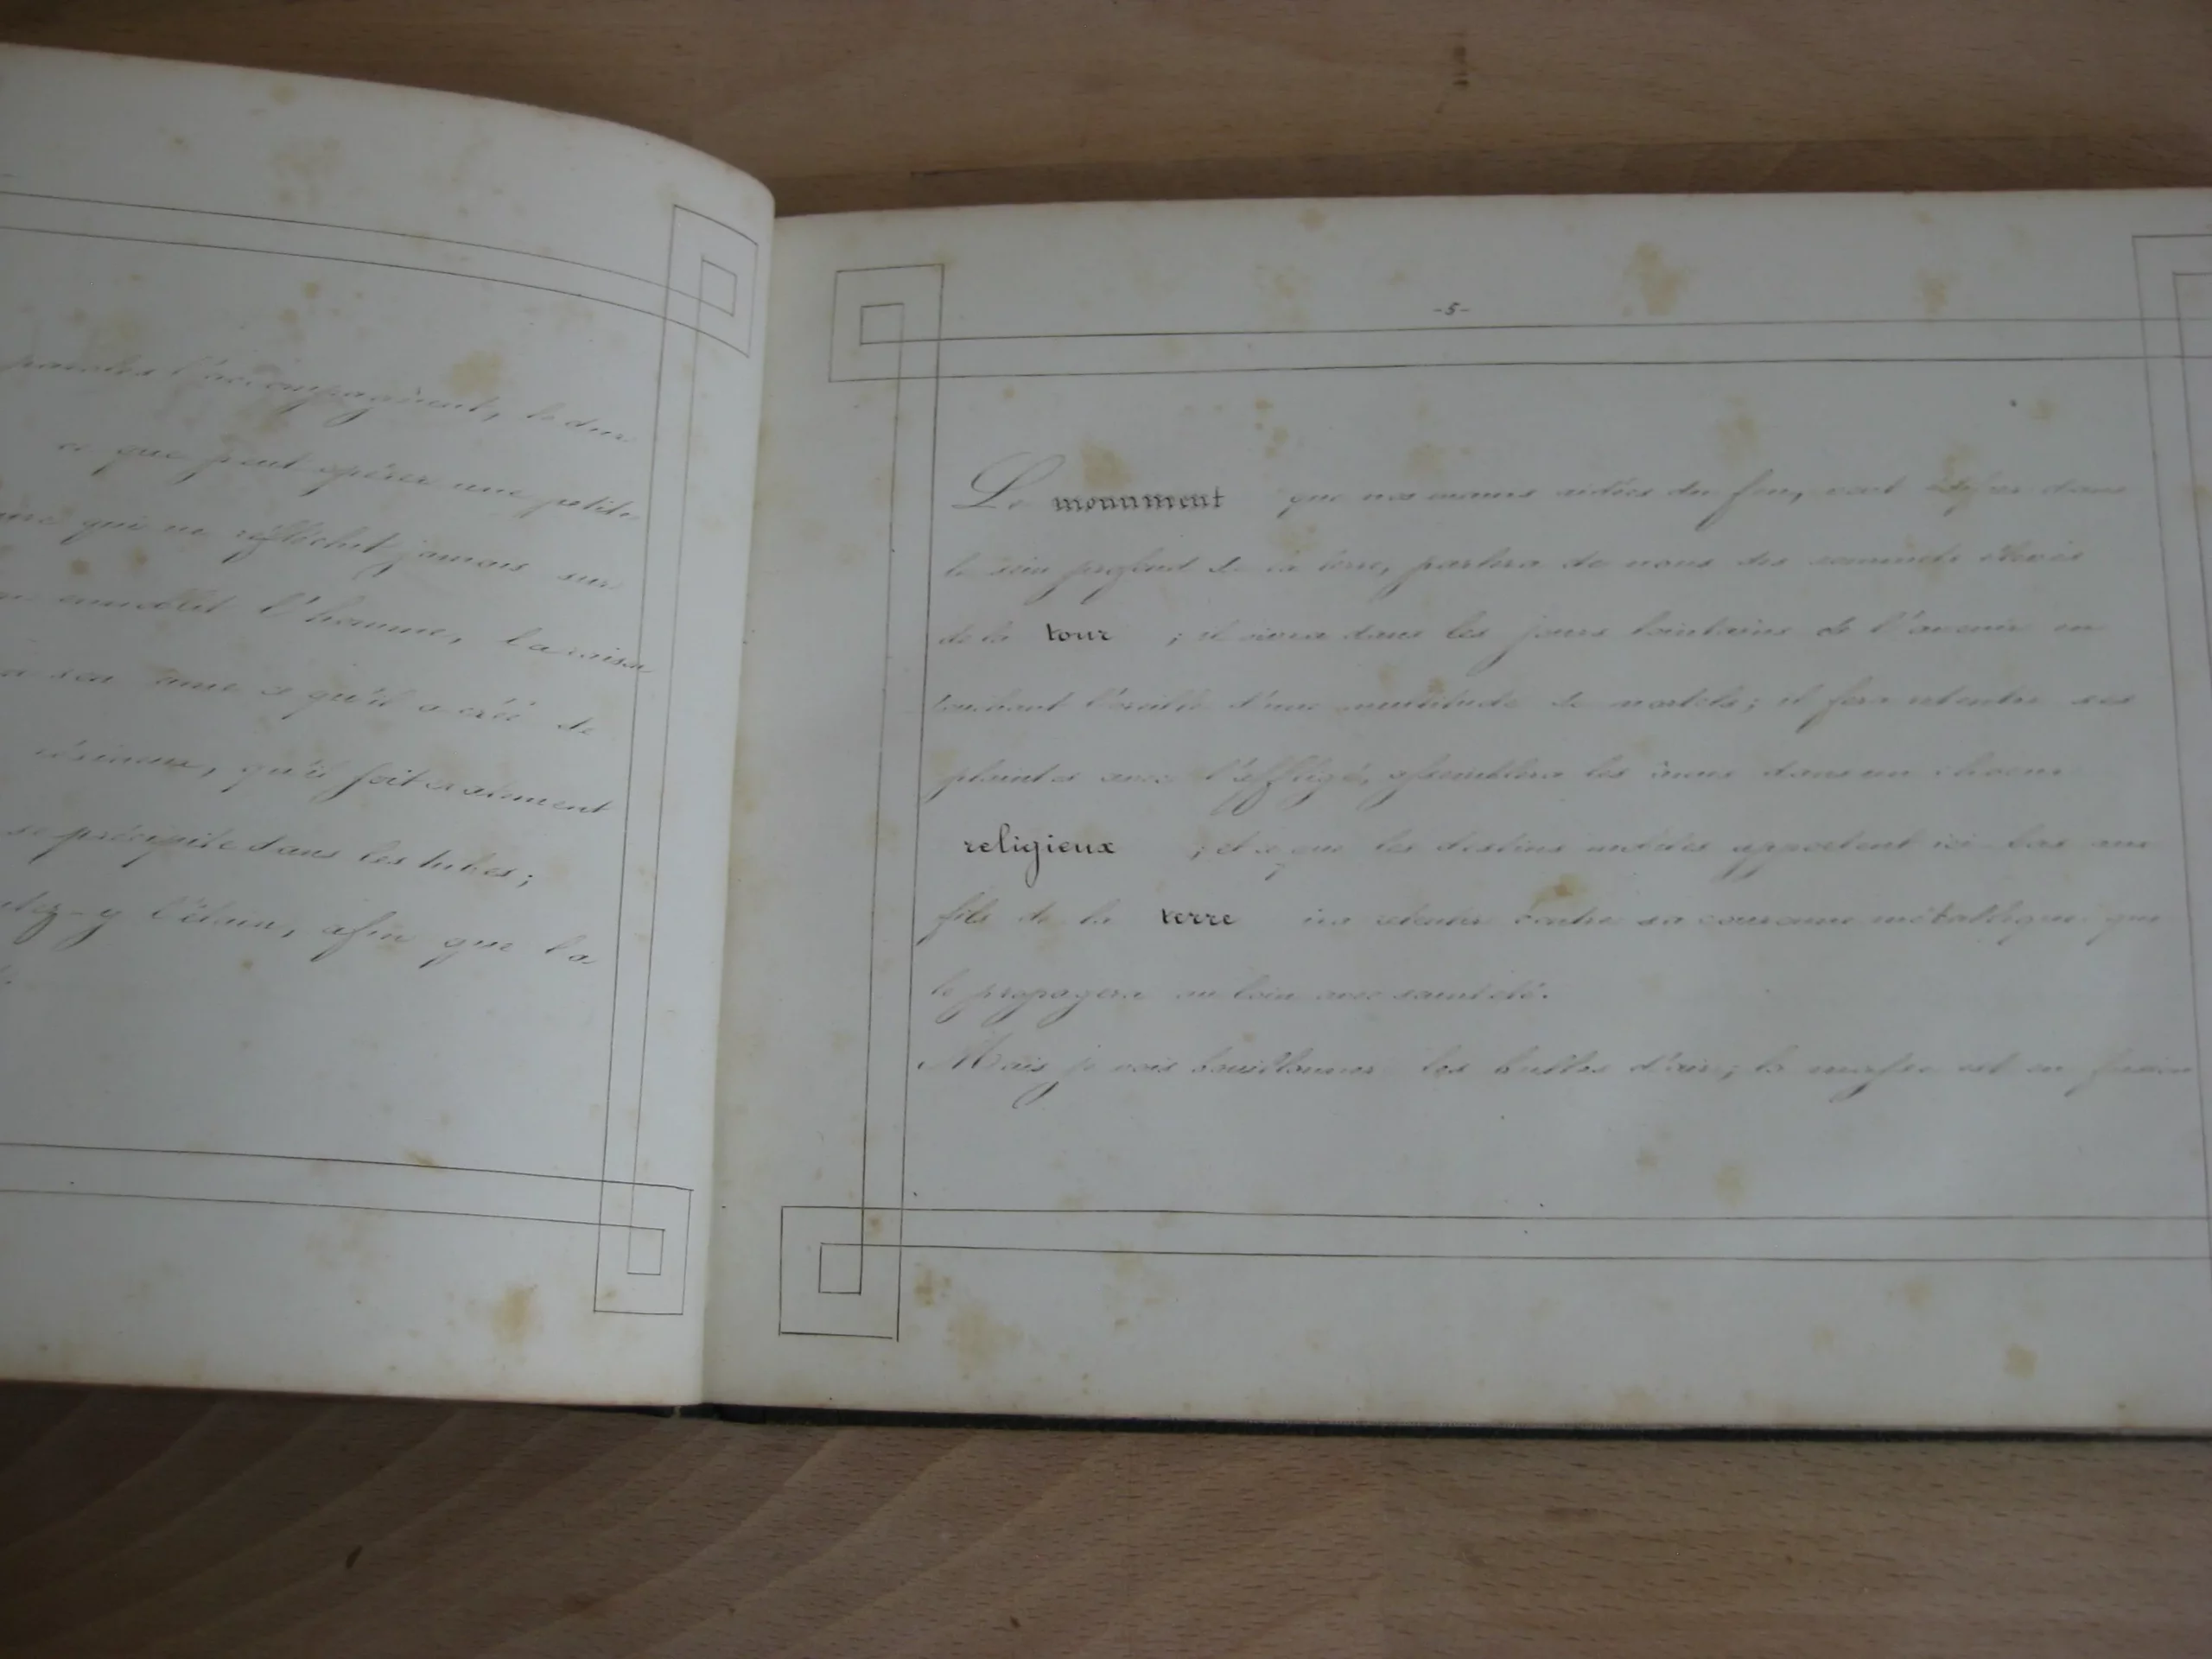 paroles l'accompagnent, le dur
ce que peut opérer une petite
qui ne réfléchit jamais sur
ennoblit l'homme, la raison
son âme ce qu'il a créé de
résineux, qu'il soit exalement
se précipite dans les tubes;
-y l'étain, afin que la
-5-
Le monument que nos mains aidées du feu, vont dans
le sein profond de la terre, parlera de nous des sommets élevés
de la tour ; il vivra dans les jours lointains de l'avenir en
touchant l'oreille d'une multitude de mortels; il fera retentir ses
plaintes avec l'affligé, assemblera les âmes dans un choeur
religieux ; et ce que les destins apportent ici-bas aux
fils de la terre ira retentir contre sa couronne métallique qui
le propagera au loin avec sainteté.
Mais je vois bouillonner les bulles d'air; la masse est en fusion